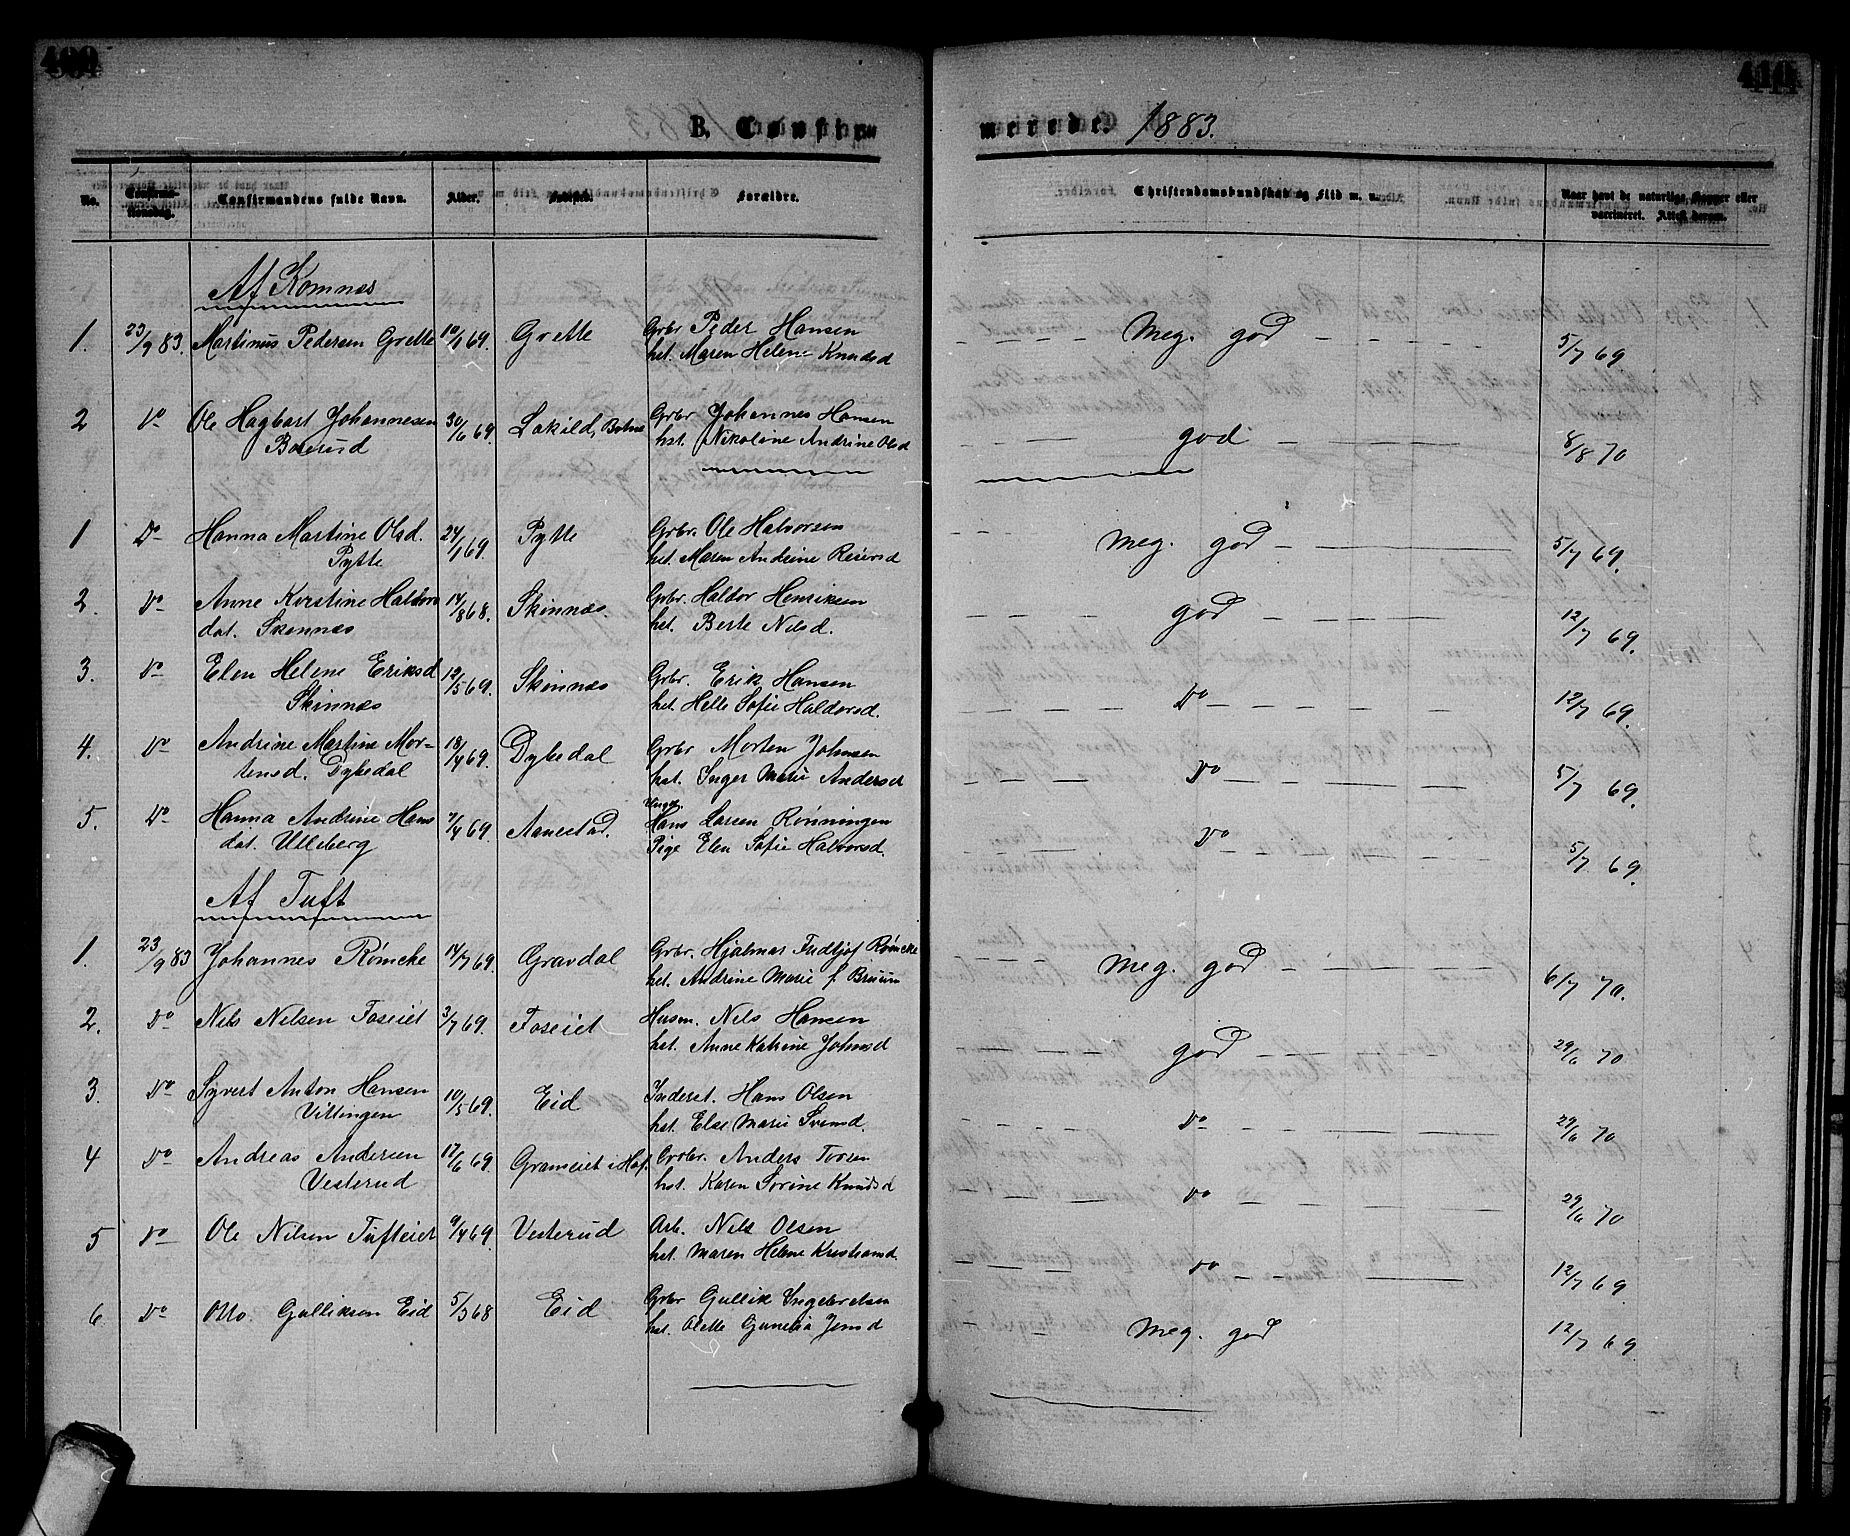 B. Confirmerede. 1883.
No. Confirmationsdag. Confirmandens fulde Navn. Alder. Fødested. Forældre. Christendomskundskab og Flid m. m. Naar havt de naturlige Kopper eller
vaccineret. Attest derom.
Af Komnes
1. 23/9 83. Martinus Pedersen Grette 10/1 69. Grette Grbr Peder Hansen Meg. god 5/7 69.
hst. Maren Helene Knudsd
2 Do Ole Hagbart Johannesen 30/6 69. Lakild, Grbr Johannes Hansen god 8/8 70
Boserud hst. Nikoline Andrine Olsd
1 Do Hanna Martine Olsd. 24/1 69. Pytte Grbr. Ole Halvorsen Meg. god 5/7 69.
Pytte hst. Maren Andrine Reiersd
2. Do Anne Kirstine Haldors 14/8 68. Skinnæs. Grbr. Haldor Henriksen god 12/7 69.
dat. Skinnæs hst. Berte Nilsd.
3. Do Elen Helene Eriksd 12/5 69. Skinnæs Grbr. Erik Hansen Do 12/7 69.
Skinnæs hst. Helle Sofie Haldorsd.
4. Do Andrine Martine Mor- 18/4 69. Dybedal Grbr Morten Johnsen Do 5/7 69.
tensd. Dybedal hst. Inger Marie Andersd
5. Do Hanna Andrine Hans 7/4 69. Aanestad. Ungk. Hans Larsen Rønningen Do 5/7. 69.
dat. Ulleberg Pige Elen Sofie Halvorsd.
Af Tuft
1. 23/9 83 Johannes Rømcke 14/7 69. Gravdal Grbr. Hjalmar Fridtjof Rømcke Meg. god 6/7 70.
hst. Andrine Marie f. Bruun
2. Do Nils Nilsen Foseiet 3/7 69. Foseiet Husm. Nils Hansen god 29/6 70
hst. Anne Katrine Johnsd
3. Do Syvert Anton Hansen 10/5 69. Eid Inderst. Hans Olsen Do 29/6 70
Vittingen hst. Else Marie Svensd.
4 Do Andreas Andersen 17/6 69. Grameiet i Haf. Grbr. Anders Toren Do 29/6 70
Vesterud hst. Karen Sorine Knudsd
5 Do Ole Nilsen Tufteiet 9/4 69. Vesterud Arb. Nils Olsen Do 12/7 69.
hst. Maren Helene Kristiansd
6. Do Otto Gulliksen Eid 5/3 68 Eid Grbr Gullik Ingebretsen Meg. god 12/7 69.
hst. Olette Gunelia Jensd